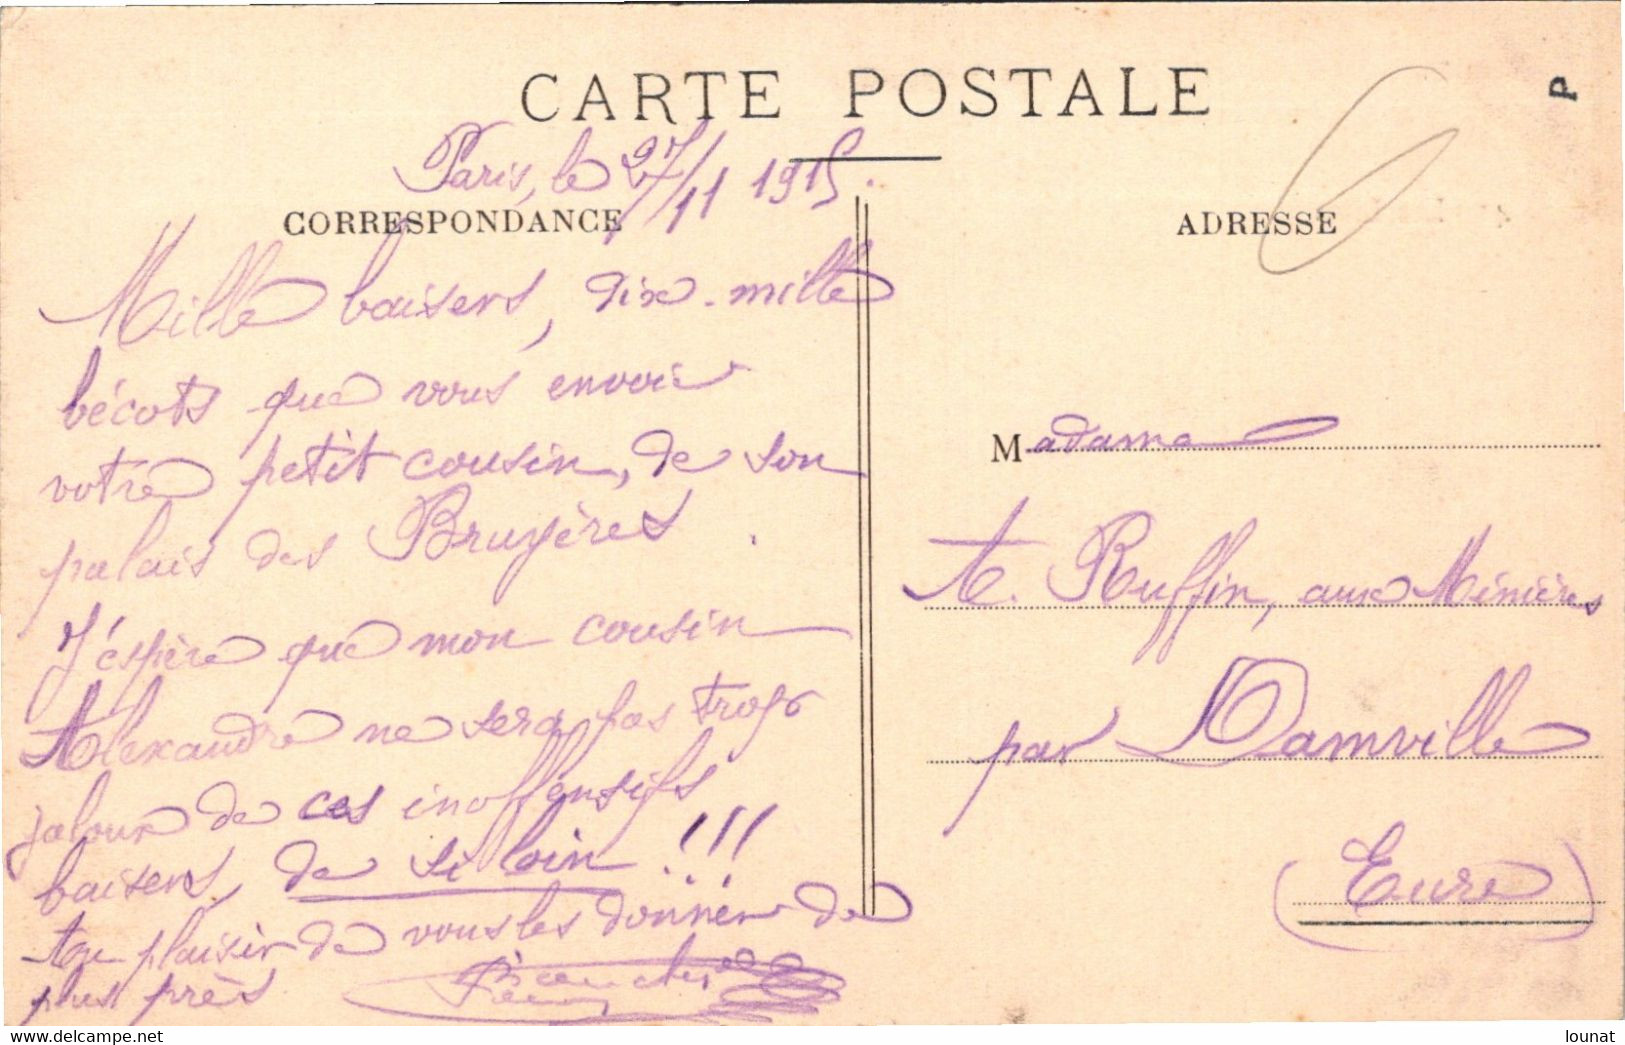 CARTE POSTALE
P
Paris, le 27/11 1915.
CORRESPONDANCE
Mille baisers, dix-mille
bécots que vous envoie
votre petit cousin, de son
palais des Bruyères.
J'espère que mon cousin
Alexandre ne sera pas trop
jaloux de ces inoffensifs
baisers, de si loin !!!
Au plaisir de vous les donner de
plus près
ADRESSE
Madame
A. Ruffin, aux Minières
par Damville
(Eure)
lounat